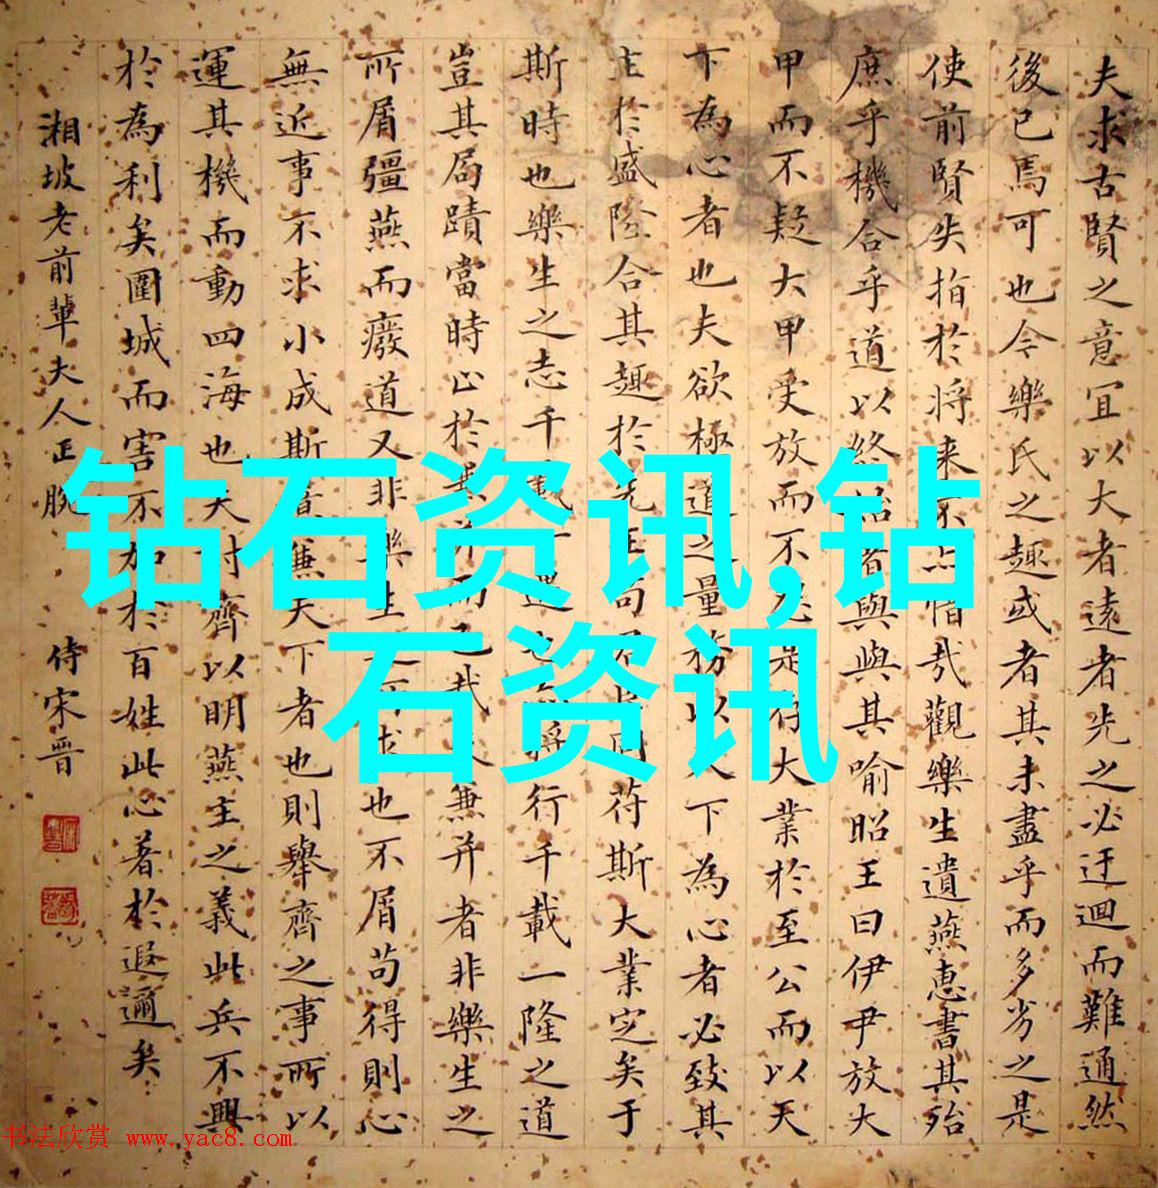 钻石资讯,钻
石资讯
夫求古賢之意宜以大者遠者先之必迂迴而難通然
後已焉可也今樂氏之趣或者其未盡乎而多劣之是
使前賢失指於將来不亦惜哉觀樂生遺燕惠書其殆
庶乎機合乎道以終始者與與其喻昭王曰伊尹放大
甲而不疑大甲受放而不怨是存大業於至公而以天
下為心者也夫欲極道之量務以天下為心者必致其
主於盛隆合其趣於先王苟君臣同苻斯大業定矣于
斯時也樂生之志千載一遇也亦將行千載一隆之道
豈其局蹟當時止於兼并而已哉夫兼并者非樂生之
所屑彊燕而廢道又非樂生之所求也不屑苟得則心
無近事不求小成斯意兼天下者也則舉齊之事所以
運其機而動四海也夫討齊以明燕主之義此兵不興
於為利矣圍城而害不加於百姓此心著於遐邇矣
湘坡老前輩夫人正腕
侍宋晋
书法欣赏 www.yac8.com